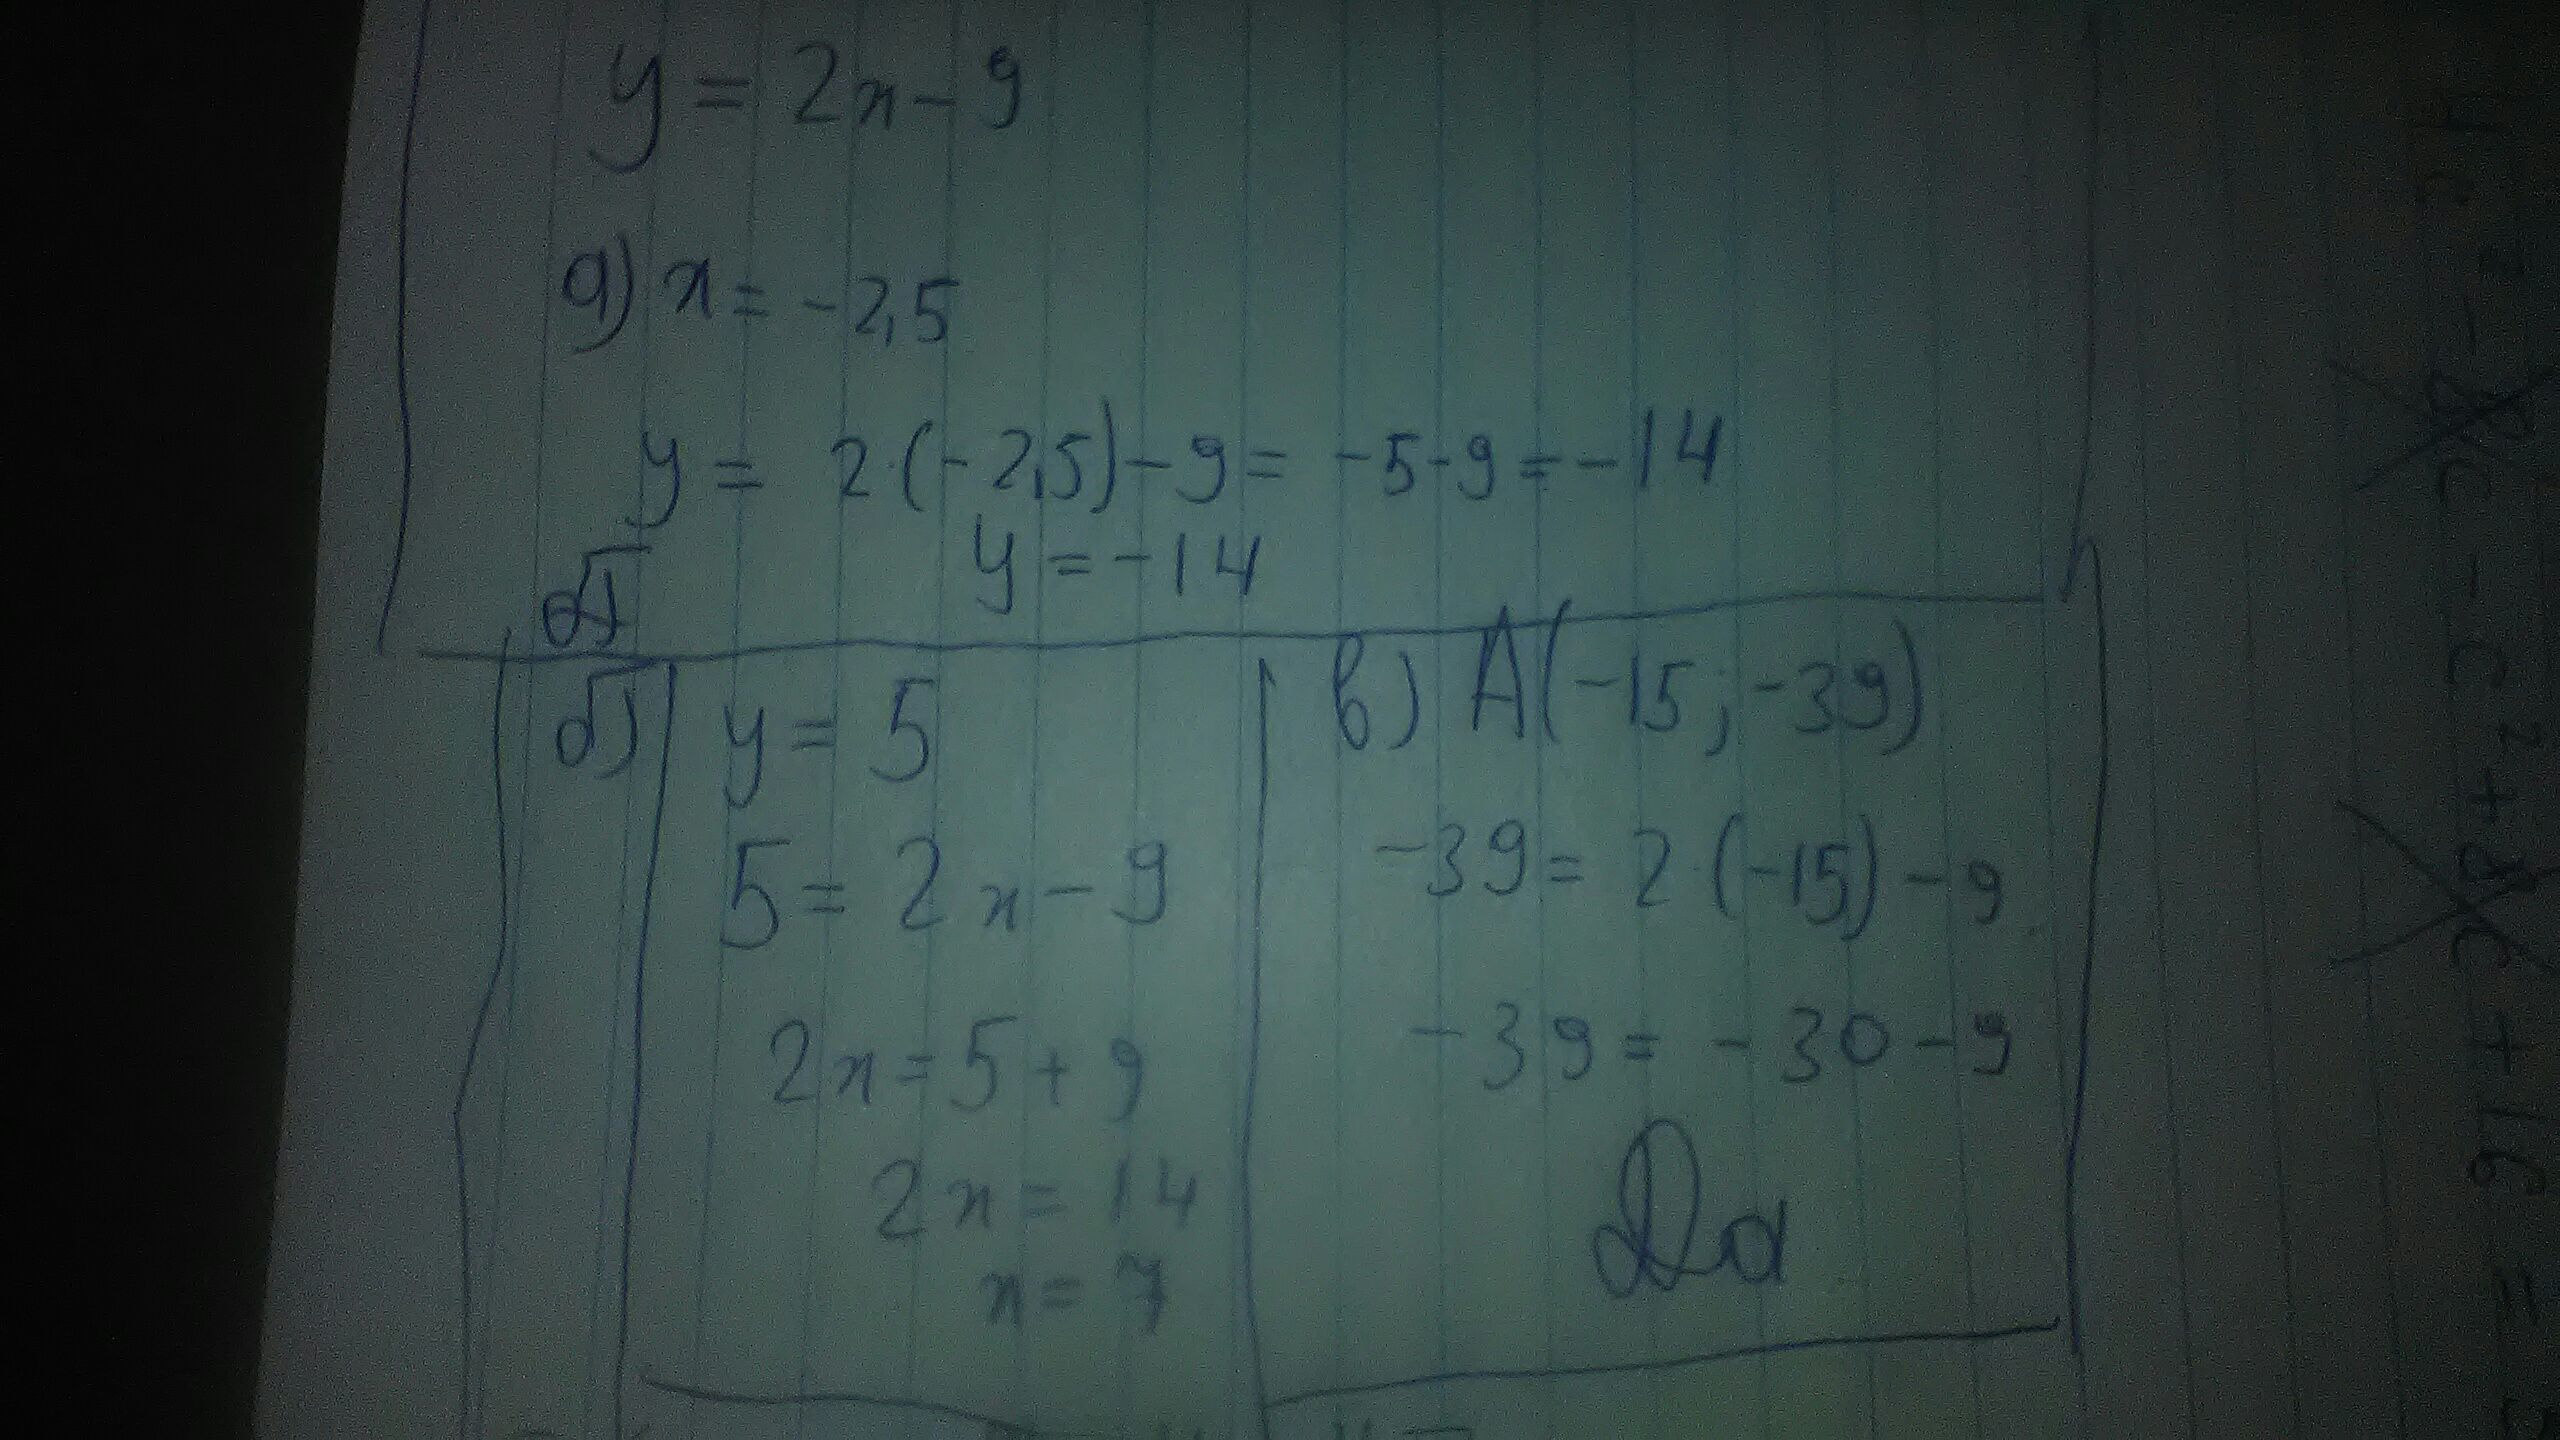 y = 2x - 9
а) x = -2,5
y = 2·(-2,5) - 9 = -5 - 9 = -14
y = -14
б)
б) y = 5
5 = 2x - 9
2x = 5 + 9
2x = 14
x = 7
в) A(-15; -39)
-39 = 2·(-15) - 9
-39 = -30 - 9
Да